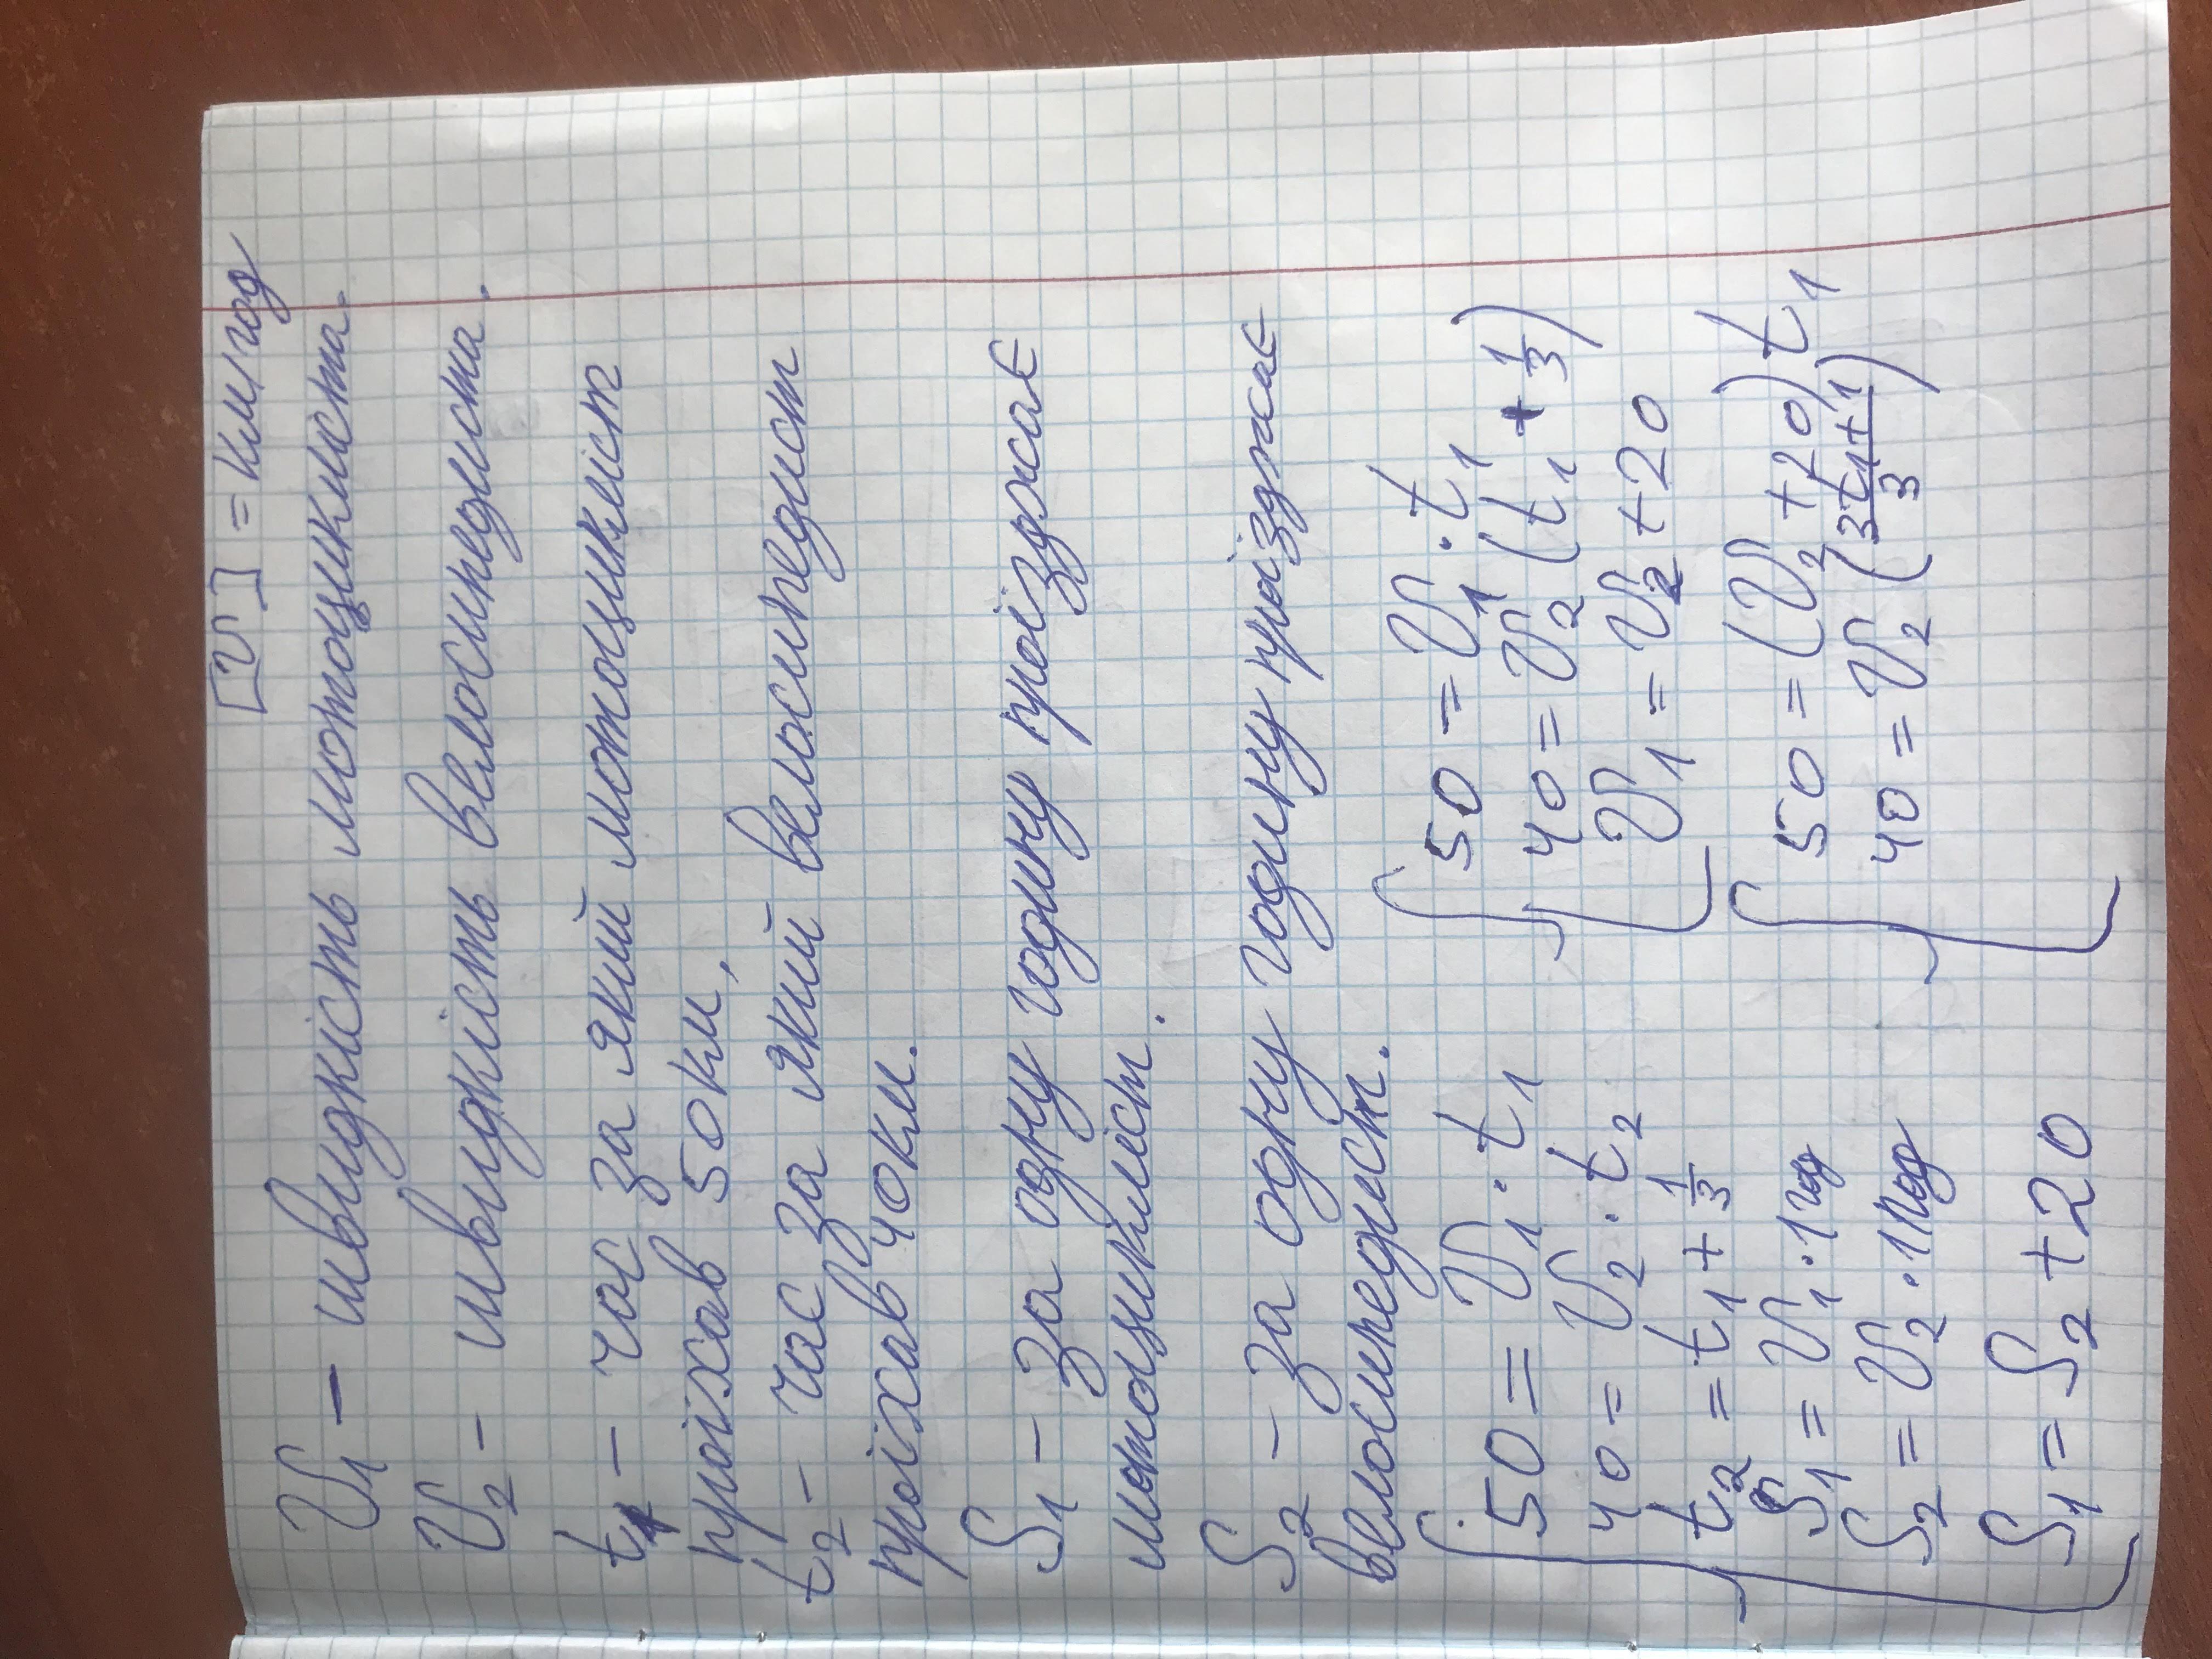 [V] = км/год
V₁ – швидкість мотоцикліста.
V₂ – швидкість велосипедиста.
t₁ – час за який мотоцикліст
проїхав 50км,
t₂ – час за який велосипедист
проїхав 40км.
S₁ – за одну годину проїзджає
мотоцикліст.
S₂ – за одну годину проїзджає
велосипедист.
50 = V₁ · t₁
40 = V₂ · t₂
t₂ = t₁ + 1/3
S₁ = V₁ · 1год
S₂ = V₂ · 1год
S₁ = S₂ + 20
50 = V₁ · t₁
40 = V₂ (t₁ + 1/3)
V₁ = V₂ + 20
50 = (V₂ + 20) t₁
40 = V₂ (3t₁+1/3)